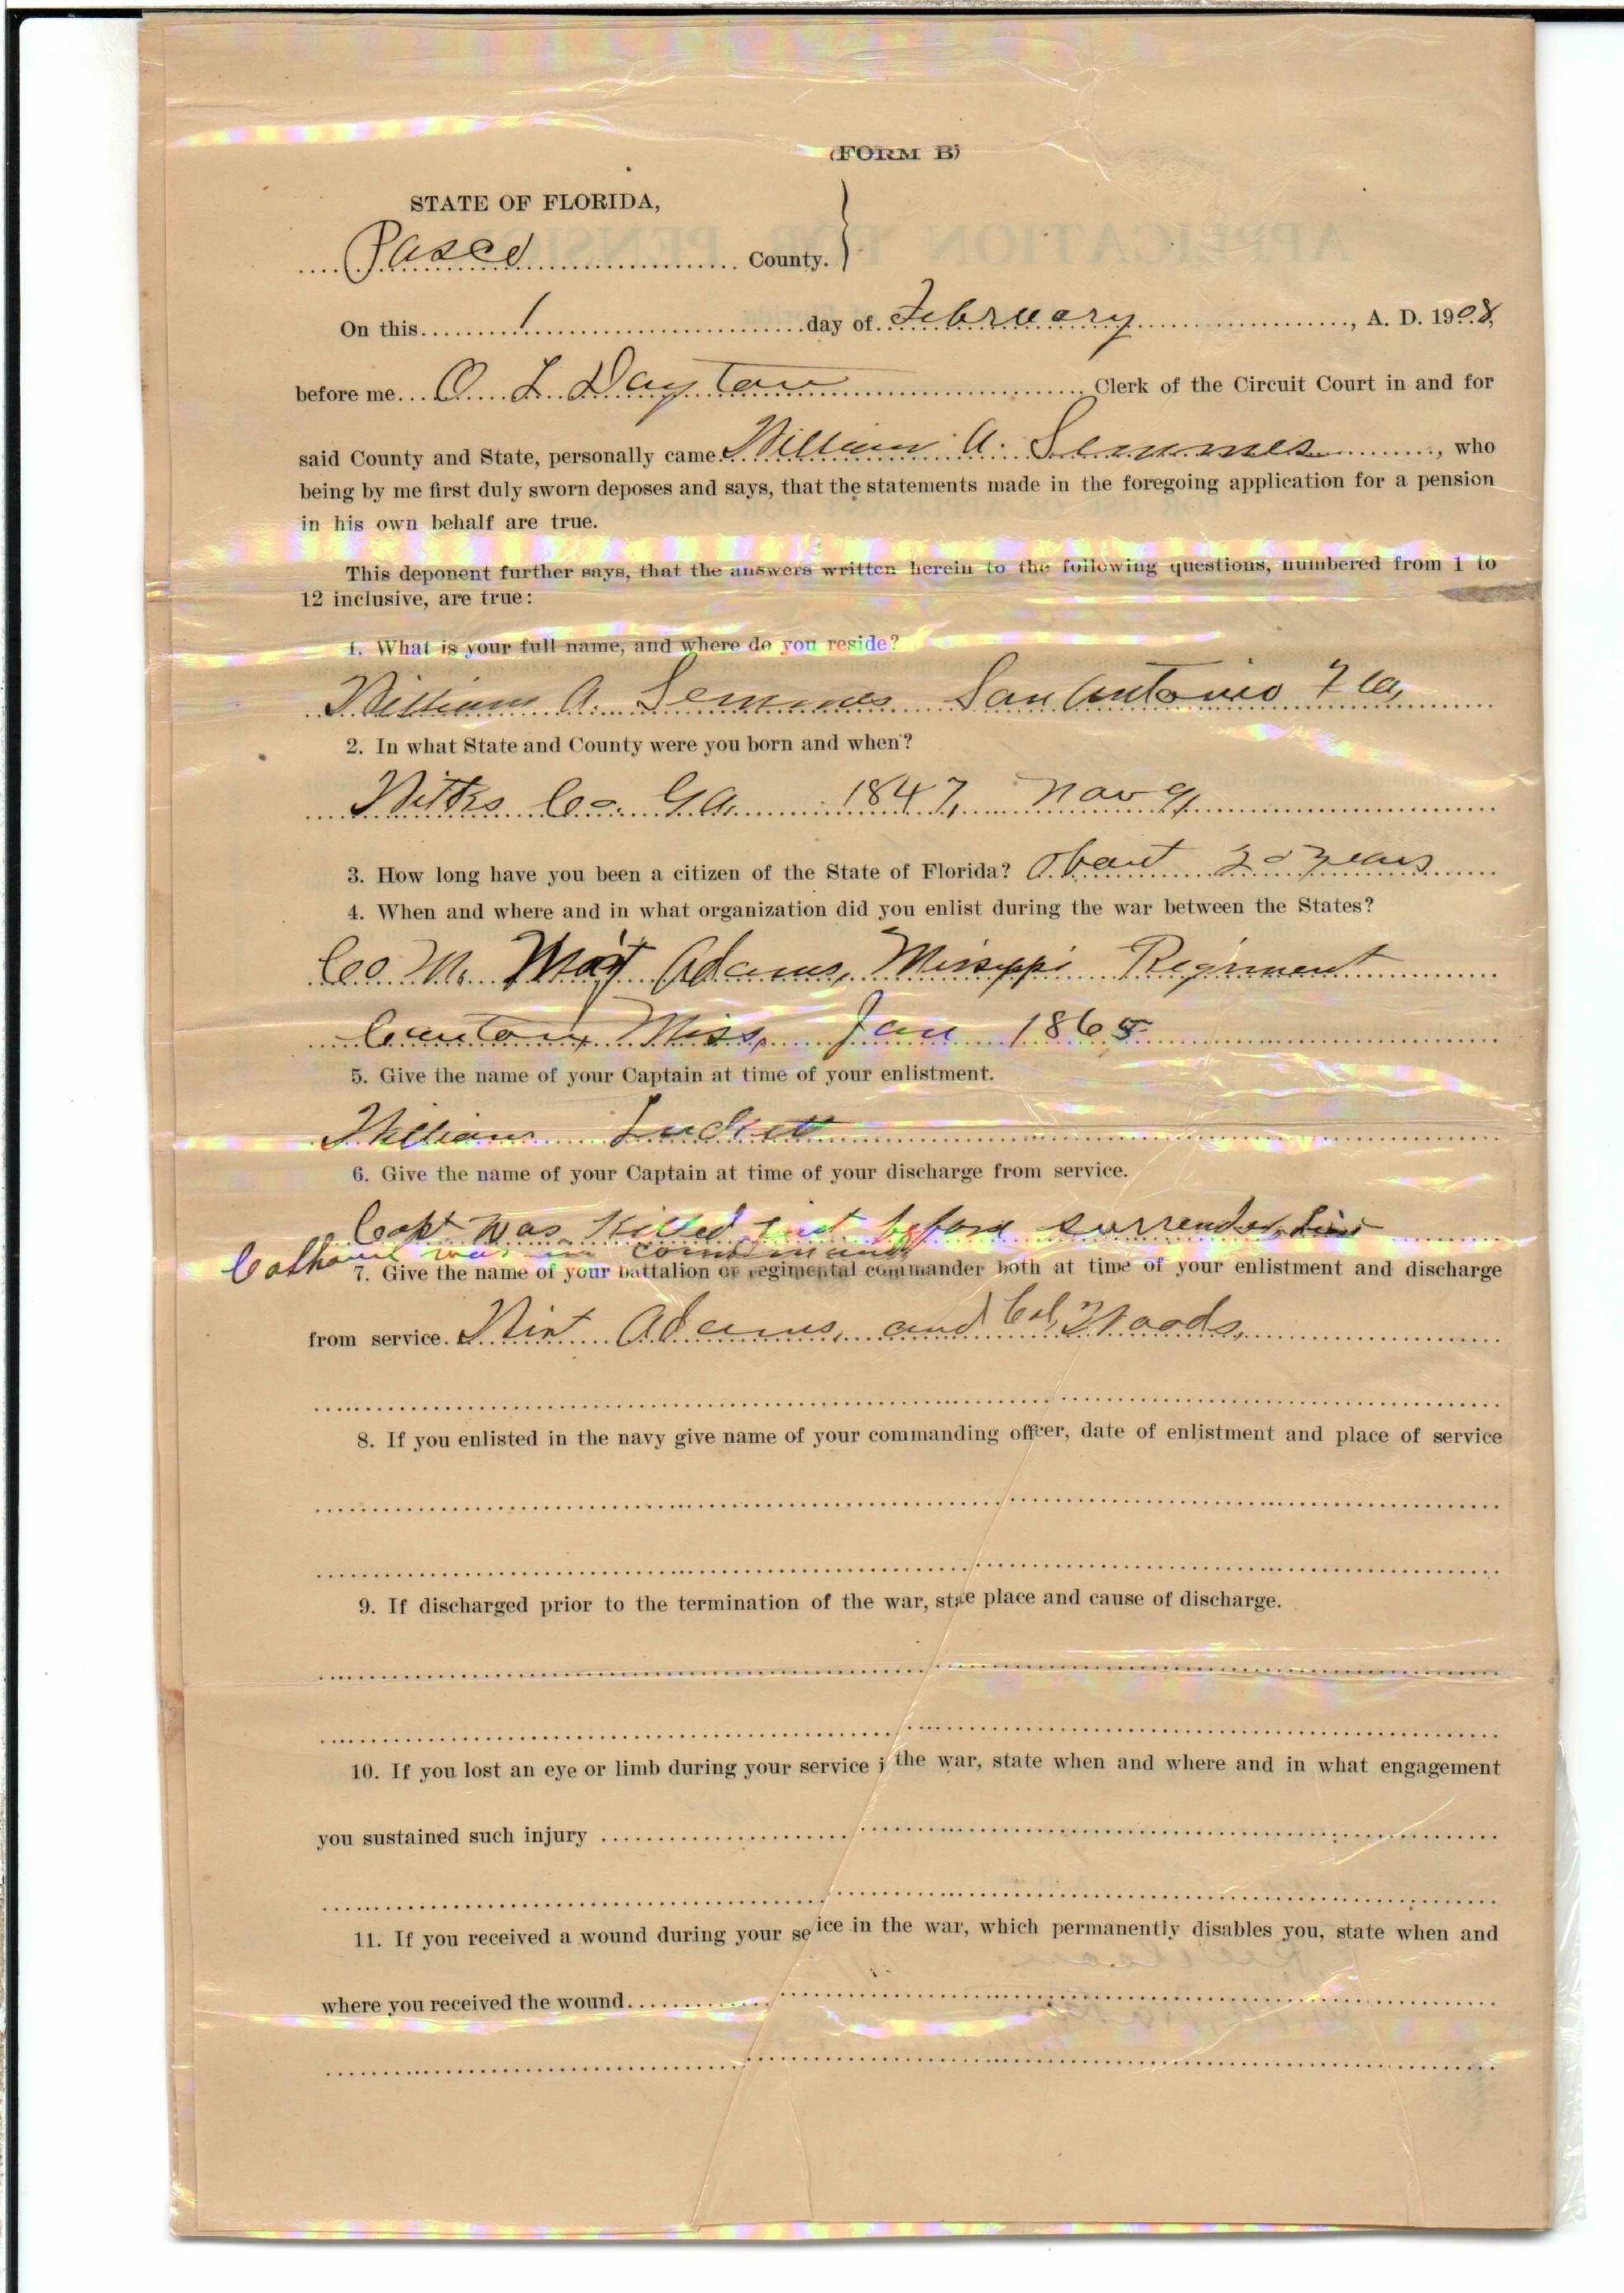 (FORM B)
STATE OF FLORIDA,
Pasco County.
On this 1 day of February, A. D. 1908,
before me O. L. Dayton Clerk of the Circuit Court in and for
said County and State, personally came William A. Semmes, who
being by me first duly sworn deposes and says, that the statements made in the foregoing application for a pension
in his own behalf are true.
This deponent further says, that the answers written herein to the following questions, numbered from 1 to
12 inclusive, are true:
1. What is your full name, and where do you reside?
William A. Semmes San Antonio Fla,
2. In what State and County were you born and when?
Wilks Co. Ga. 1847, Nov 9,
3. How long have you been a citizen of the State of Florida? About 20 years
4. When and where and in what organization did you enlist during the war between the States?
Co. M. Adams, Missippi Regiment
Canton, Miss, Jan 1865
5. Give the name of your Captain at time of your enlistment.
William Luckett
6. Give the name of your Captain at time of your discharge from service.
Capt was Killed just before surrender,
Calhoun was in command
7. Give the name of your battalion or regimental commander both at time of your enlistment and discharge
from service. Wirt Adams, and Col, Woods,
8. If you enlisted in the navy give name of your commanding offcer, date of enlistment and place of service
9. If discharged prior to the termination of the war, stae place and cause of discharge.
10. If you lost an eye or limb during your service i the war, state when and where and in what engagement
you sustained such injury
11. If you received a wound during your seice in the war, which permanently disables you, state when and
where you received the wound